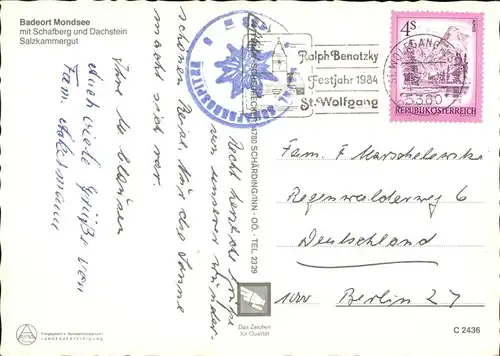 Badeort Mondsee
mit Schafberg und Dachstein
Salzkammergut
Recht herzliche Grüße
von unserer wunder-
schönen Reise. Nur die Sonne
macht sich rar.
Ihre
Auch viele Grüße von
Fam.
4780 SCHÄRDING/INN - OÖ. - TEL. 23 29
Ralph Benatzky
Festjahr 1984
St. Wolfgang
ST. WOLFGANG
5360
4 S
REPUBLIK ÖSTERREICH
Fam. F. Marschelewske
Regenwalderweg 6
Deutschland
1000 Berlin 27
Das Zeichen
für Qualität
C 2436